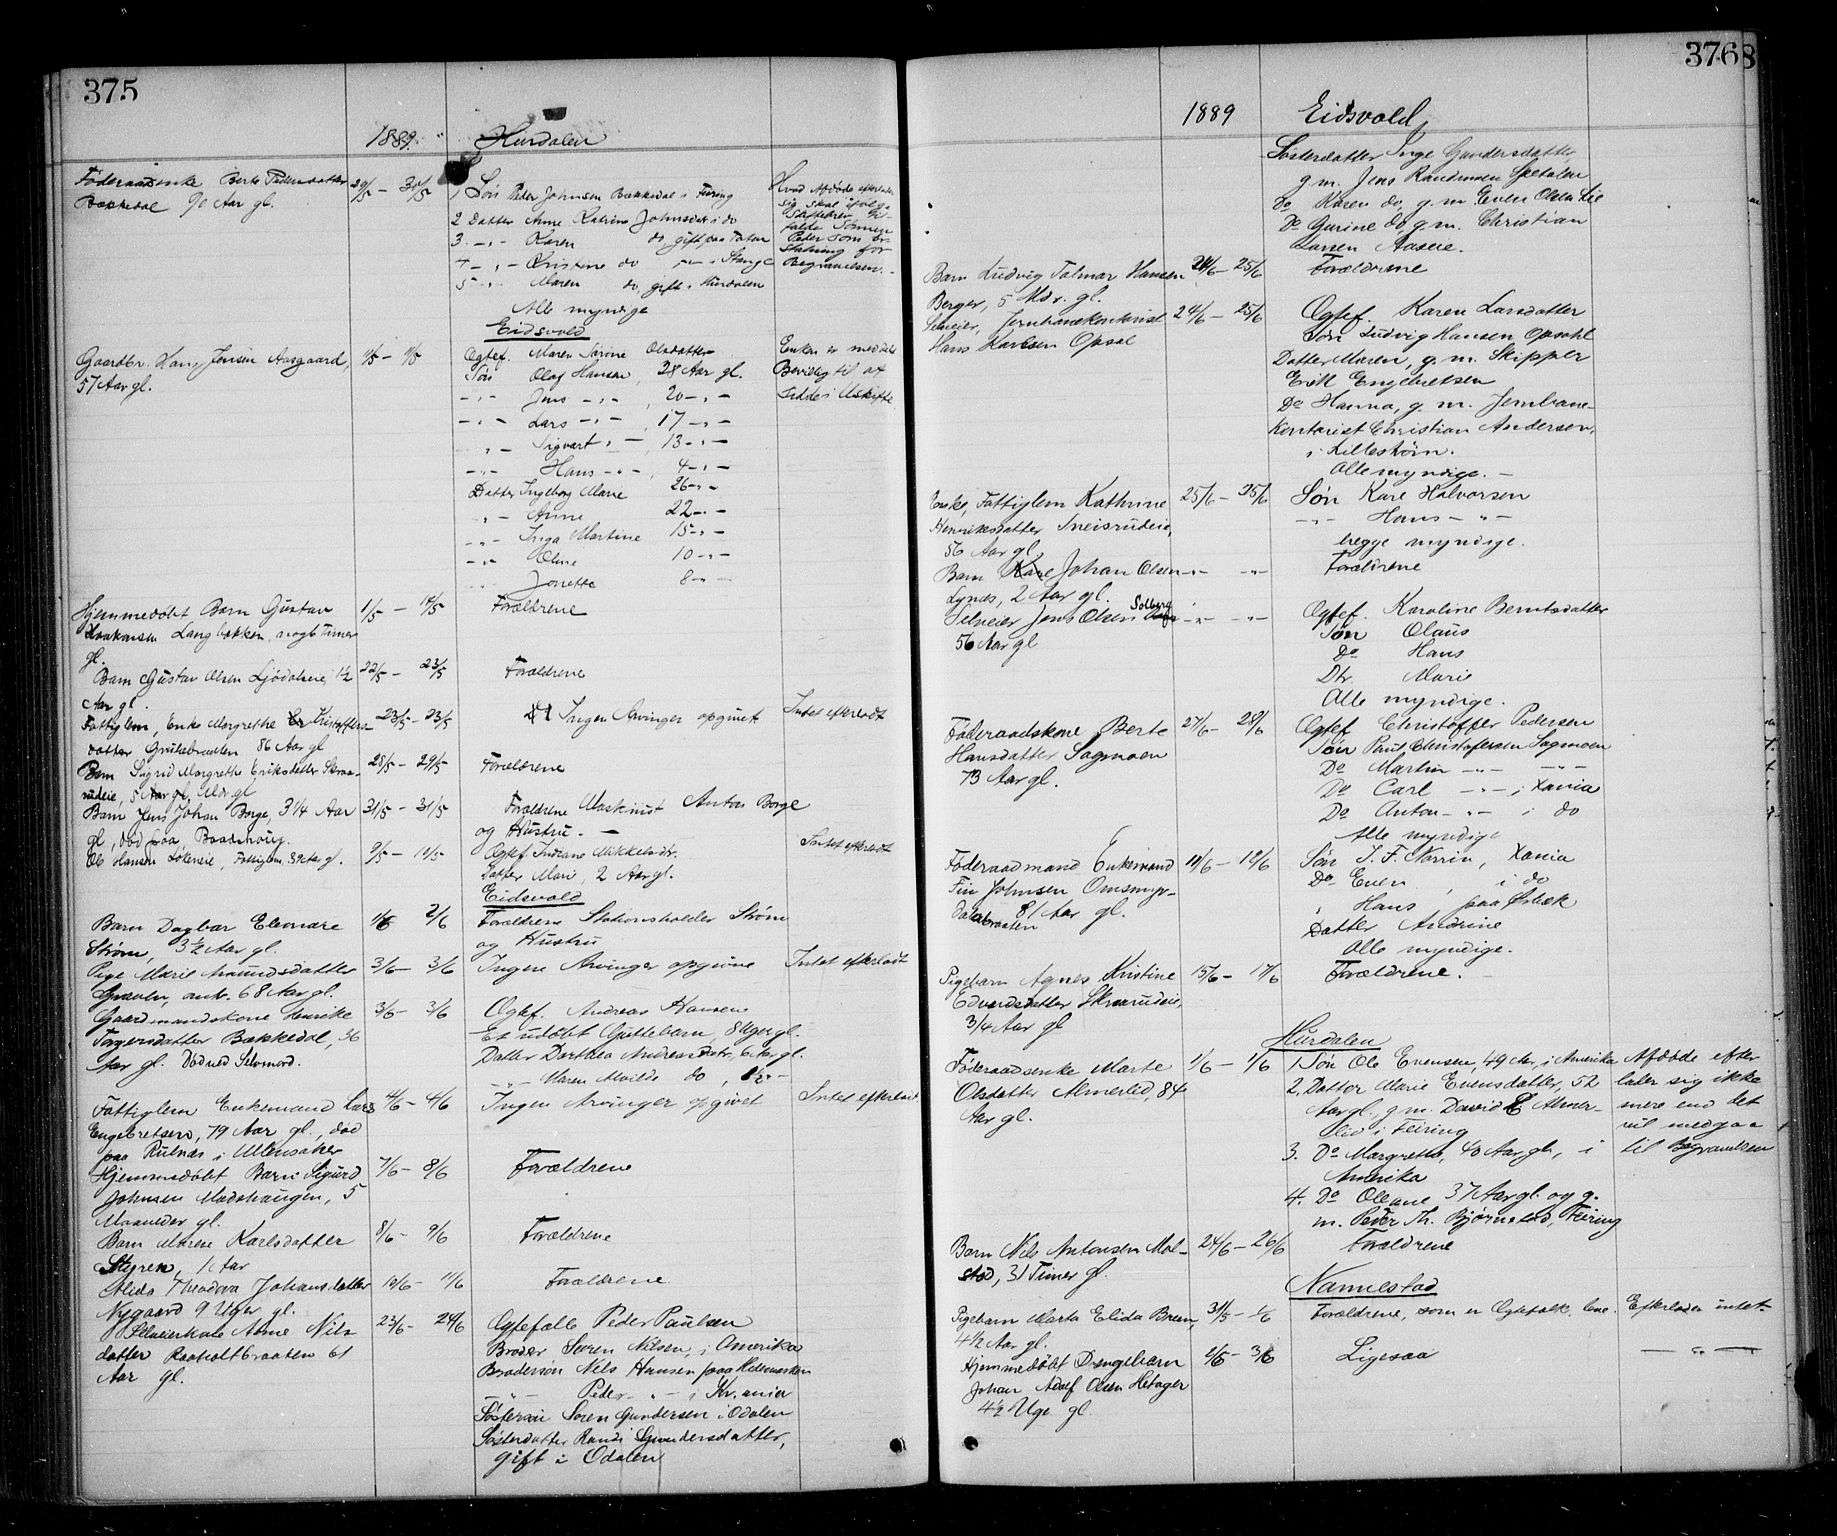 375
1889.
Hurdalen
Föderaadsenke Berte Pedersdatter
Bækkedal 90 Aar gl.
29/5 - 30/5
1 Søn Peder Johnsen Bækkedal i Feiring
2 Datter Anne Katrine Johnsdatr i do
3 -„- Karen do, gift paa Toten
4 -„- Kristine do -„- i Stange
5 -„- Maren do, gift i Hurdalen
Alle myndige
Hvad Afdöde efterlader
sig skal ifølge
tilfalde Sönnen
Peder som Er-
statning for
Begravelsen.
Eidsvold
Gaardbr. Hans Jensen Aasgaard,
57 Aar gl.
Ogtef. Maren Sörine Olsdatter
Søn Olaf Hansen, 28 Aar gl.
-„- Jens -„-, 20 -„-
-„- Lars -„-, 17 -„-
-„- Sigvart -„-, 13 -„-
-„- Hans -„-, 4 -„-
Datter Ingeborg Marie 26 -„-
-„- Anne 22 -„-
-„- Inga Martine 15 -„-
-„- Oline 10 -„-
Jonette 8 -„-
Enken er meddelt
Bevilling til at
sidde i Uskifte
Hjemmedöbt Barn Gustav
Haakonsen Langbakken, nogle Timer
gl.
1/5 - 14/5
Forældrene
Barn Gustav Olsen Ljödalseie, 1½
Aar gl.
22/5 - 23/5
Forældrene
Fattiglem, Enke Margrethe Kristoffers-
datter Grütebraaten 86 Aar gl
23/5 - 23/5
Ingen Arvinger opgivet
Intet efterladt
Barn Sigrid Margrethe Eriksdatter Skraa-
rudeie, 5 Aar gl. Mdr gl
28/5 - 29/5
Forældrene
Barn Jens Johan Borge, 3 1/4 Aar
gl, död paa Baadshaug.
31/5 - 31/5
Forældrene Maskinist Anton Borge
og Hustru. -
Ole Hansen Lökeneie, Fattiglem
9/5 - 10/5
Ogtef. Indiane Mikkelsdtr.
Datter Mari, 2 Aar gl.
Intet efterladt
Eidsvold
Barn Dagbar Eleonore
Ström, 3½ Aar gl.
1/6 2/6
Forældrene Stationsholder Ström
og Hustru
Pige Marie Amundsdatter
Graven, ant. 68 Aar gl.
3/6 - 3/6
Ingen Arvinger opgivne
Intet efterladt
Gaardmandskone Henrikke
Torgersdatter Bækkedal, 36
Aar gl. Död ved Selvmord.
3/6 - 3/6
Ogtef. Andreas Hansen
Et udöbt Guttebarn, 8 Uger gl.
Datter Dorthea Andreasdatr, 6 Aar gl.
-„- Maren Alvilde do, 1½ -„-
Fattiglem Enkemand Lars
Engebretsen, 79 Aar gl., död
paa Rulnæs i Ullensaker
4/6 - 4/6
Ingen Arvinger opgivet
Intet efterladt
Hjemmedöbt Barn Sigurd
Johnsen Madshaugen, 5
Maaneder gl.
7/6 - 8/6
Forældrene
Barn Marene Karlsdatter
Styren, 1 Aar
8/6 - 9/6
Forældrene
Alida Theodora Johansdatter
Nygaard 9 Uger gl.
10/6 - 11/6
Forældrene
Selveierkone Anne Nils
datter Raaholtbraaten 61
Aar gl.
23/6 - 24/6
Ogtefælle Peder Paulsen
Broder Søren Nilsen, i Amerika
Brodersøn Nils Hansen paa Hedemarken
-„- Peder -„- i Kr.ania
Søstersøn Søren Gundersen i Odalen
Søsterdatter Randi Gundersdatter,
gift i Odalen
3768
1889
Eidsvold
Søsterdatter Inge Gundersdatter,
g. m. Jens Rasmussen Spetalen
Do Karen do, g. m. Even Olsen Lie
Do Gurine do g. m. Christian
Larsen Aaseie.
Barn Ludvig Talmar Hansen
Berger, 5 Mdr. gl.
24/6 - 25/6
Forældrene
Selveier, Jernbanekontorist
Hans Karlsen Opsal
24/6 - 25/6
Ogtef. Karen Larsdatter
Søn Ludvig Hansen Opsahl
Datter Maren, g. m. Skipper
Erik Engebretsen
Do Hanna, g. m. Jernbane-
Kontorist Christian Andersen,
i Lilleström.
Alle myndige. -
Enke, Fattiglem Kathrine
Henriksdatter Sneisrudeie,
56 Aar gl.
25/6 - 25/6
Søn Kare Halvorsen
-„- Hans -„-
begge myndige.
Barn Johan Olsen
Lynæs, 2 Aar gl.
-„- -„-
Forældrene
Selveier Jens Olsen Solberg
56 Aar gl
-„- -„-
Ogtef. Karoline Berntsdatter
Søn Olaus
Do Hans
Dtr. Marie
Alle myndige.
Föderaadskone Berte
Hansdatter Sagmoen
73 Aar gl.
27/6 - 28/6
Ogtef Christoffer Pedersen
Søn Paul Christofersen Sagmoen
Do Martin -„- -„-
Do Carl -„- i Xania
Do Anton -„- i do
Alle myndige
Föderaadmand Enkemand
Fin Johnsen Omsmyr-
dalsbraaten 81 Aar gl.
10/6 - 12/6
Søn J. F. Norrin, Xania
Do Even, i do
„ Hans paa Østbæk
Datter Andrine
Alle myndige.
Pigebarn Agnes Kristine
Edvardsdatter Skraarudeie,
3/4 Aar gl
15/6 - 17/6
Forældrene.
Hurdalen
Föderaadsenke Marte
Olsdatter Almerlid, 84
Aar gl.
1/6 - 1/6
1 Søn Ole Evensen, 49 Aar, i Amerika
2. Datter Marie Evensdatter, 52
Aar gl, g. m. David E Almer-
lid i Feiring
3. Do Margrethe, 40 Aar gl, i
Amerika
4. Do Oleane 37 Aar gl. og g.
m. Peder Th. Bjørnstad, Feiring
Afdöde efter
lader sig ikke
mere end det
vil medgaa
til Begravelsen
Barn Nils Antonsen Mol-
stad, 31 Timer gl.
24/6 - 26/6
Forældrene
Nannestad
Pigebarn Marta Elida Breen,
4½ Aar gl.
31/5 - 1/6
Forældrene, som er Ogtefolk, leve.
Efterlader intet
Hjemmedöbt Drengebarn
Johan Adolf Olsen Hetager
4½ Uge gl.
2/5 - 3/6
Ligesaa
- „ -